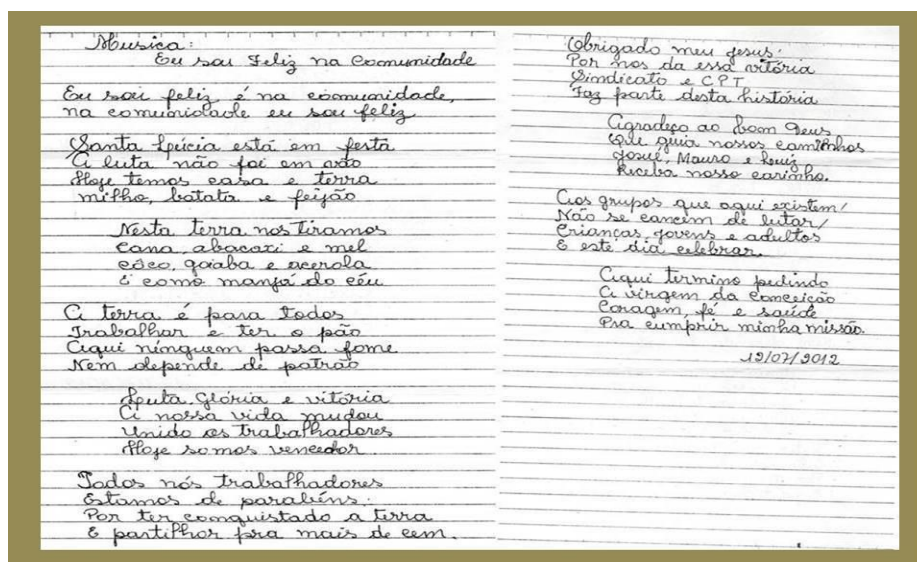 Musica:
Eu sou Feliz na Comunidade
Eu sou feliz é na comunidade,
na comunidade eu sou feliz
Santa Lúcia está em festa
A luta não foi em vão
Hoje temos casa e terra
milho, batata e feijão
Nesta terra nos tiramos
Cana, abacaxi e mel
côco, goiaba e acerola
É como manjá do céu
A terra é para todos
Trabalhar e ter o pão
Aqui ninguem passa fome
Nem depende de patrão
Luta, Glória e vitória
A nossa vida mudou
Unido os trabalhadores
Hoje somos vencedor
Todos nós trabalhadores
Estamos de parabéns.
Por ter conquistado a terra
E partilhar pra mais de cem.
Obrigado meu Jesus.
Por nos da essa vitória
Sindicato e CPT
Faz parte desta história
Agradeço ao bom Deus
Que guia nossos caminhos
Josué, Mauro e Luiz
Receba nosso carinho.
Aos grupos que aqui existem/
Não se cancem de lutar/
Crianças, jovens e adultos
E este dia celebrar.
Aqui termino pedindo
A virgem da Conceição
Coragem, fé e saúde
Pra cumprir minha missão.
12/07/2012